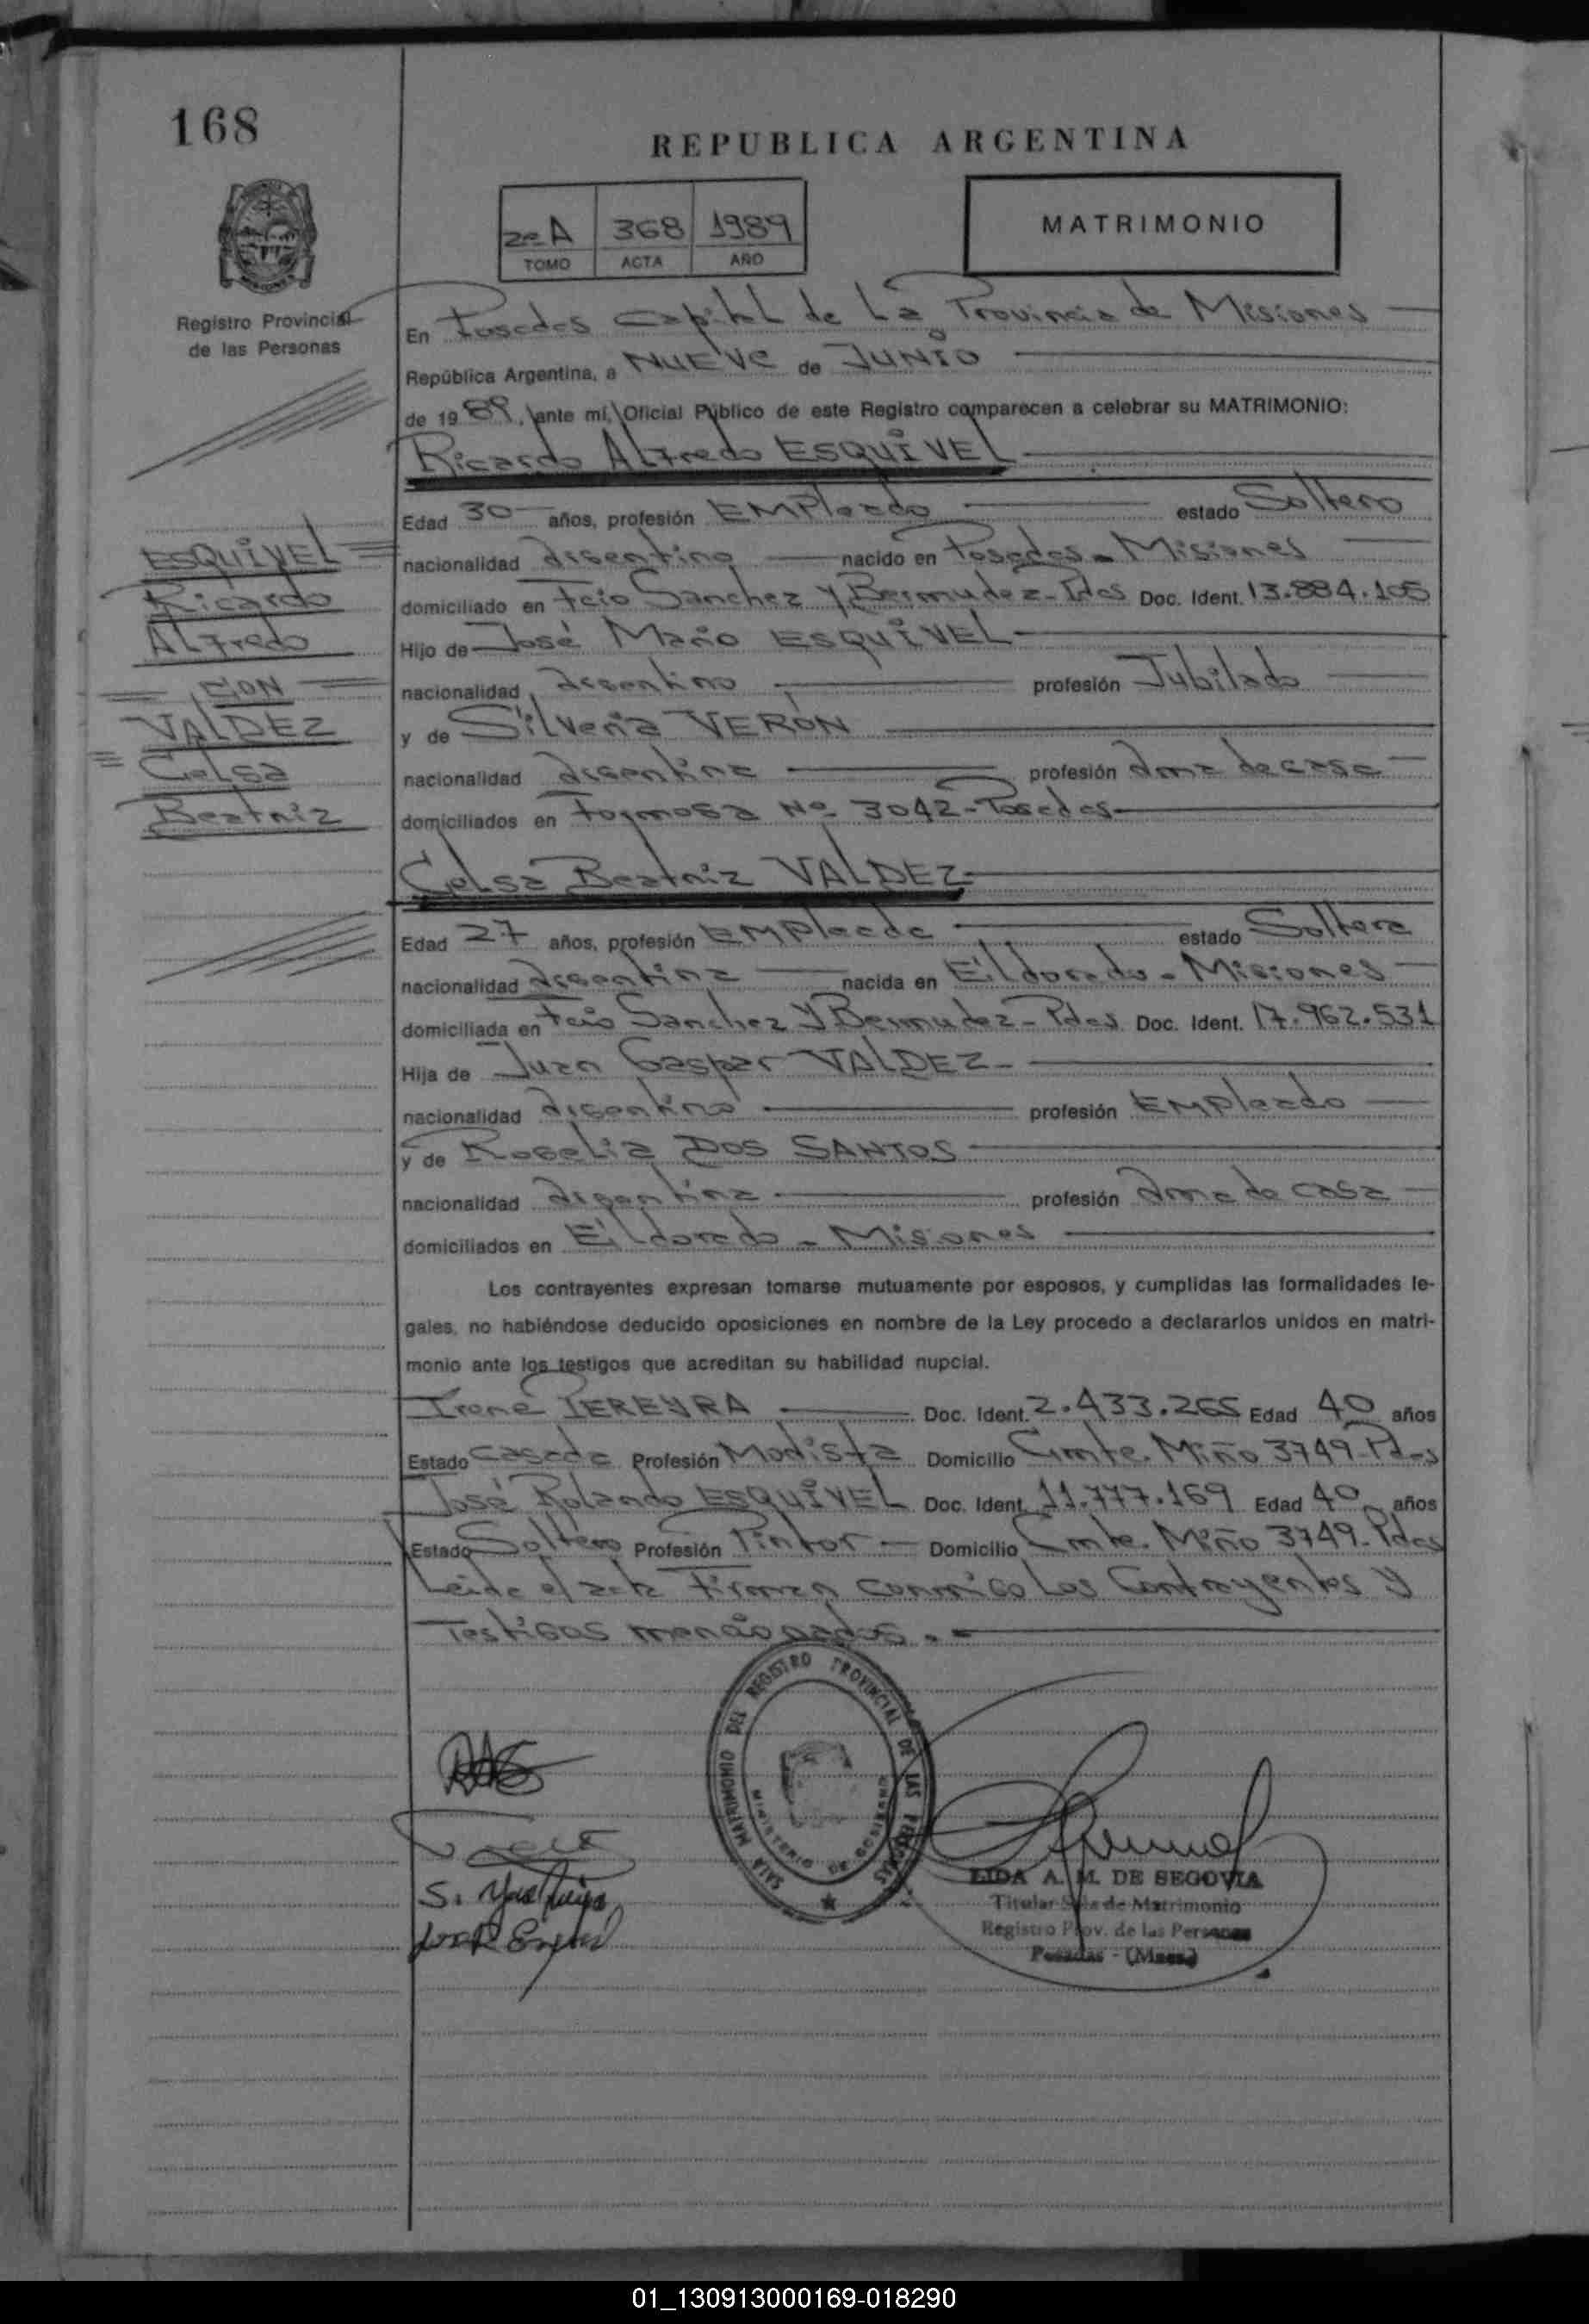 168
REPUBLICA ARGENTINA
2º A 368 1989
TOMO ACTA AÑO
MATRIMONIO
Registro Provincial
de las Personas
En Posadas Capital de La Provincia de Misiones
República Argentina, a NUEVE de JUNIO
de 1989, ante mí, Oficial Público de este Registro comparecen a celebrar su MATRIMONIO:
Ricardo Alfredo ESQUIVEL
Edad 30 años, profesión EMPleado estado Soltero
nacionalidad argentino nacido en Posadas - Misiones
domiciliado en Fcio Sanchez y Bermudez - Pdas Doc. Ident. 13.884.105
Hijo de José Mario ESQUIVEL
nacionalidad argentino profesión Jubilado
y de Silveria VERÓN
nacionalidad argentina profesión ama de casa
domiciliados en Formosa Nº 3042 - Posadas
ESQUIVEL
Ricardo
Alfredo
CON
VALDEZ
Celsa
Beatriz
Celsa Beatriz VALDEZ
Edad 27 años, profesión EMPleada estado Soltera
nacionalidad argentina nacida en Eldorado - Misiones
domiciliada en Fcio Sanchez y Bermudez - Pdas Doc. Ident. 17.962.531
Hija de Juan Gaspar VALDEZ
nacionalidad argentino profesión EMPleado
y de Rogelia DOS SANTOS
nacionalidad argentina profesión ama de casa
domiciliados en Eldorado - Misiones
Los contrayentes expresan tomarse mutuamente por esposos, y cumplidas las formalidades le-
gales, no habiéndose deducido oposiciones en nombre de la Ley procedo a declararlos unidos en matri-
monio ante los testigos que acreditan su habilidad nupcial.
Irene PEREYRA Doc. Ident. 2.433.265 Edad 40 años
Estado Casada Profesión Modista Domicilio Cmte. Miño 3749 - Pdas
José Rolando ESQUIVEL Doc. Ident. 11.777.169 Edad 40 años
Estado Soltero Profesión Pintor Domicilio Cmte. Miño 3749 - Pdas
Leida el acta Firman conmigo Los Contrayentes y
Testigos mencionados.
SALA MATRIMONIO DEL REGISTRO PROVINCIAL DE LAS PERSONAS
MINISTERIO DE GOBIERNO
LIDA A. M. DE SEGOVIA
Titular Sala de Matrimonio
Registro Prov. de las Personas
Posadas - (Mnes.)
01_130913000169-018290